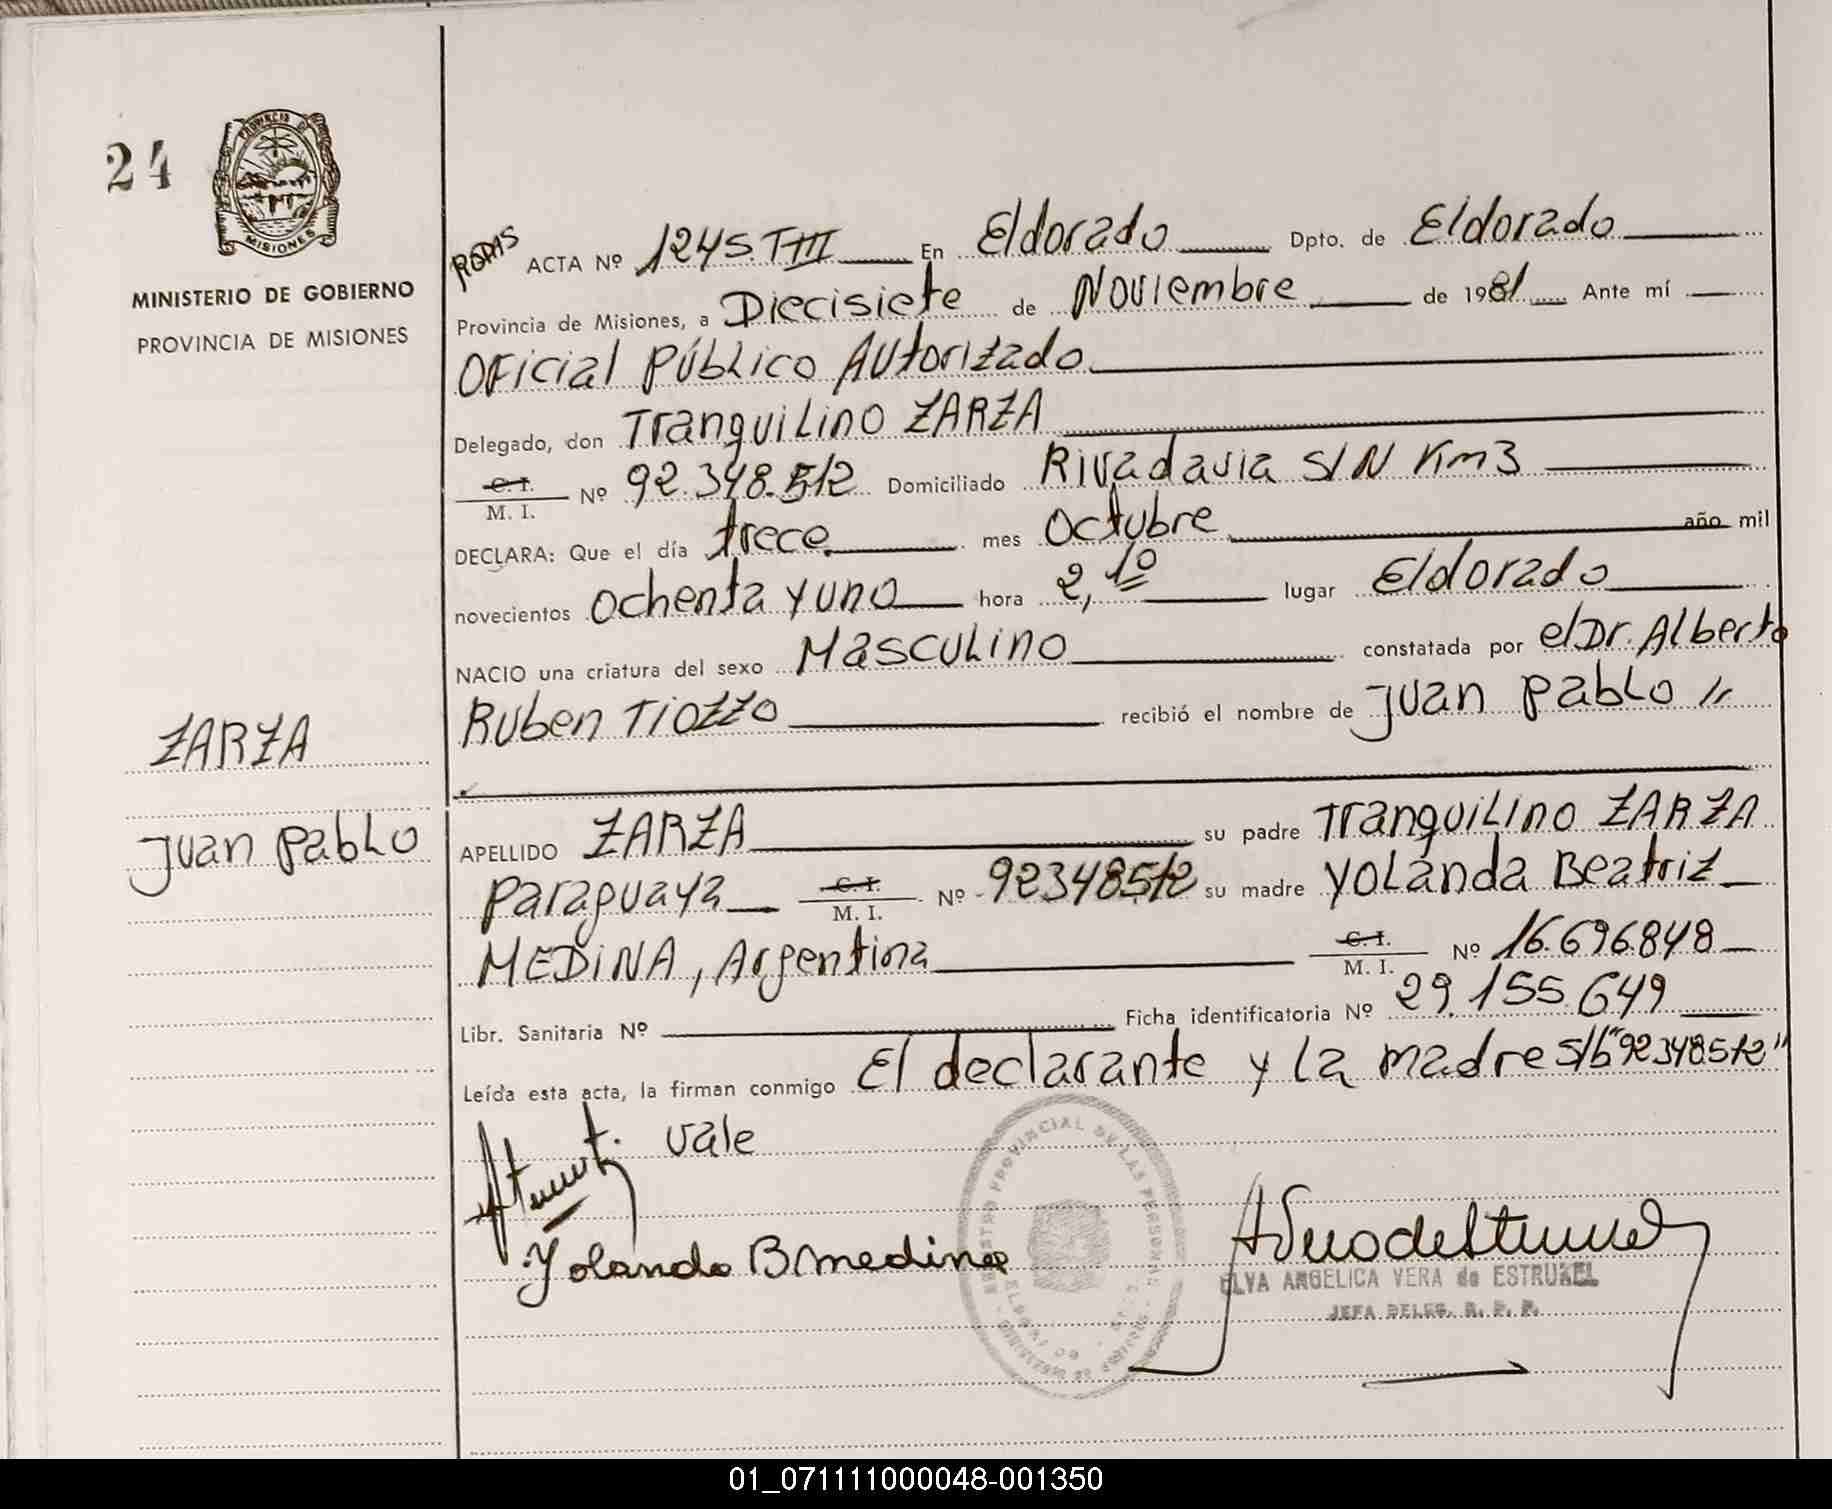 24
PROVINCIA DE
MISIONES
MINISTERIO DE GOBIERNO
PROVINCIA DE MISIONES
ZARZA
Juan Pablo
RODAS ACTA Nº 1245.T III En Eldorado Dpto. de Eldorado
Provincia de Misiones, a Diecisiete de Noviembre de 1981 Ante mí
Oficial Público Autorizado
Delegado, don Tranquilino ZARZA
C.I. M. I. Nº 92.348.512 Domiciliado Rivadavia S/N Km3
DECLARA: Que el día trece mes Octubre año mil
novecientos ochenta y uno hora 2,10 lugar Eldorado
NACIO una criatura del sexo Masculino constatada por el Dr. Alberto
Ruben Tiozzo recibió el nombre de Juan Pablo
APELLIDO ZARZA su padre Tranquilino ZARZA
Paraguaya C.I. M. I. Nº 92348512 su madre Yolanda Beatriz
MEDINA, Argentina C.I. M. I. Nº 16.696.848
Libr. Sanitaria Nº Ficha identificatoria Nº 29.155.649
Leída esta acta, la firman conmigo El declarante y la madre s/b "92348512"
vale
Yolanda B medina
REGISTRO PROVINCIAL DE LAS PERSONAS
ELVA ANGELICA VERA de ESTRUXEL
JEFA DELEG. R. P. P.
01_071111000048-001350